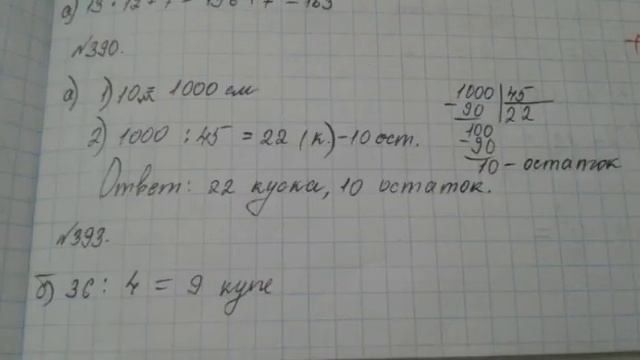 а) 13 · 12 + 7 = 156 + 7 = 163
№390.
а) 1) 10м = 1000 см
2) 1000 : 45 = 22 (к.) - 10 ост.
1000 | 45
- 90 | 22
100
- 90
10 - остаток
Ответ: 22 куска, 10 остаток.
№393.
б) 36 : 4 = 9 купе